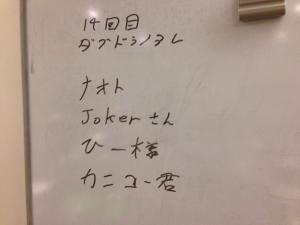 14回目
ダブドラノタレ
ナオト
Jokerさん
ひー様
カニコー君